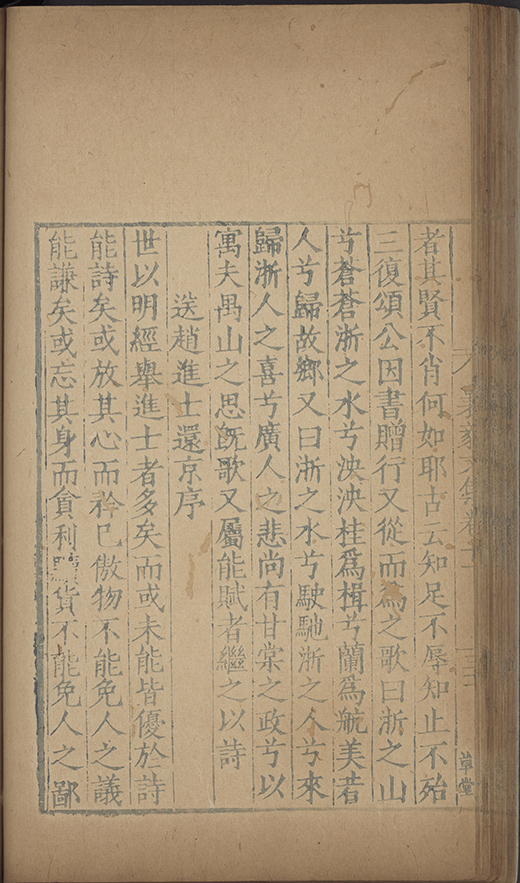 者其賢不肖何如耶古云知足不辱知止不殆
三復頌公因書贈行又從而為之歌曰浙之山
兮蒼蒼浙之水兮泱泱桂為楫兮蘭為航美若
人兮歸故鄉又曰浙之水兮駛馳浙之人兮來
歸浙人之喜兮廣人之悲尚有甘棠之政兮以
寓夫禺山之思既歌又屬能賦者繼之以詩
送趙進士還京序
世以明經舉進士者多矣而或未能皆優於詩
能詩矣或放其心而矜已傲物不能免人之議
能謙矣或忘其身而貪利黷貨不能免人之鄙
文集卷十
草堂